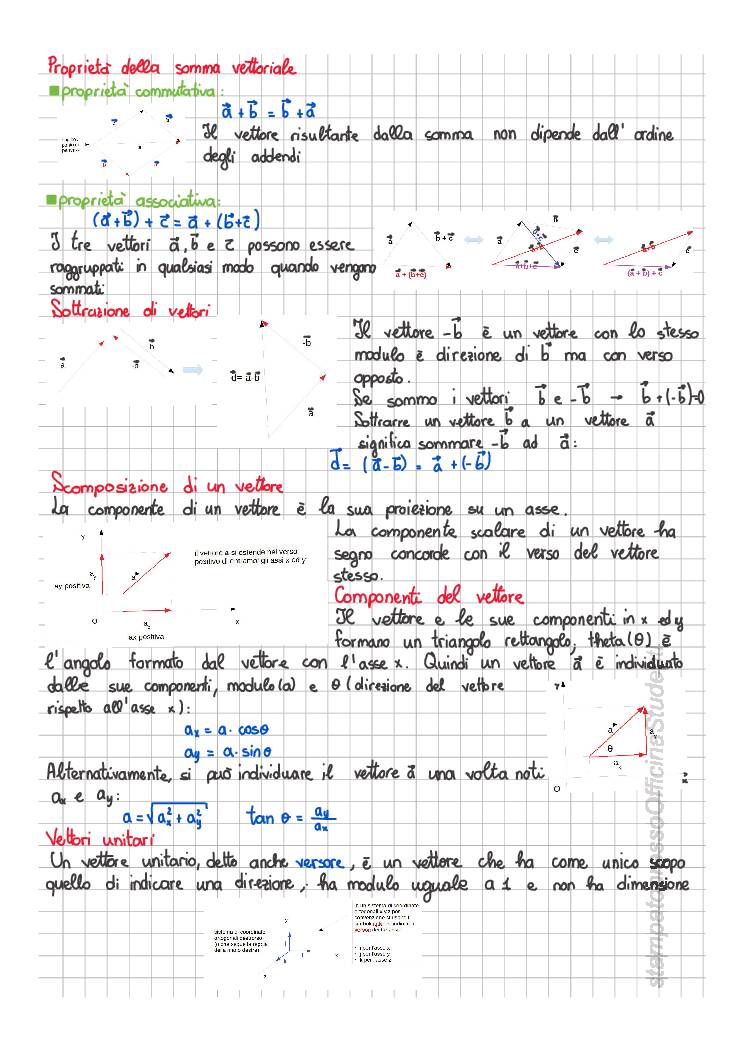 Proprietà della somma vettoriale
■proprietà commutativa:
a⃗ + b⃗ = b⃗ + a⃗
Il vettore risultante dalla somma non dipende dall' ordine
degli addendi
■proprietà associativa:
(a⃗+b⃗) + c⃗ = a⃗ + (b⃗+c⃗)
I tre vettori a⃗, b⃗ e c⃗ possono essere
raggruppati in qualsiasi modo quando vengono
sommati
a⃗
b⃗ + c⃗
a⃗ + (b⃗+c⃗)
a⃗
b⃗
b⃗+c⃗
a⃗+b⃗
c⃗
a⃗+b⃗+c⃗
a⃗+b⃗
c⃗
(a⃗ + b⃗) + c⃗
Sottrazione di vettori
a⃗
b⃗
-b⃗
d⃗= a⃗-b⃗
a⃗
Il vettore -b⃗ è un vettore con lo stesso
modulo e direzione di b⃗ ma con verso
opposto.
Se sommo i vettori b⃗ e -b⃗ → b⃗+(-b⃗)=0
Sottrarre un vettore b⃗ a un vettore a⃗
significa sommare -b⃗ ad a⃗:
d⃗= (a⃗-b⃗) = a⃗ +(-b⃗)
Scomposizione di un vettore
La componente di un vettore è la sua proiezione su un asse.
La componente scalare di un vettore ha
segno concorde con il verso del vettore
stesso.
y
il vettore a si estende nel verso
positivo di entrambi gli assi x ed y
ay positiva
a⃗
O
x
ax positiva
Componenti del vettore
Il vettore e le sue componenti in x ed y
formano un triangolo rettangolo; theta(θ) è
l'angolo formato dal vettore con l'asse x. Quindi un vettore a⃗ è individuato
dalle sue componenti, modulo (a) e θ (direzione del vettore
rispetto all'asse x):
aₓ = a· cosθ
a_y = a· sinθ
Y
a⃗
θ
O
x
Alternativamente, si può individuare il vettore a⃗ una volta noti
aₓ e a_y:
a = √(aₓ² + a_y²) tan θ = a_y/aₓ
Vettori unitari
Un vettore unitario, detto anche versore, è un vettore che ha come unico scopo
quello di indicare una direzione, ; ha modulo uguale a 1 e non ha dimensione
sistema di coordinate
ortogonali destrorso
(o che segue la regola
della mano destra)
y
x
z
• i per l'asse x
• j per l'asse y
• k per l'asse z